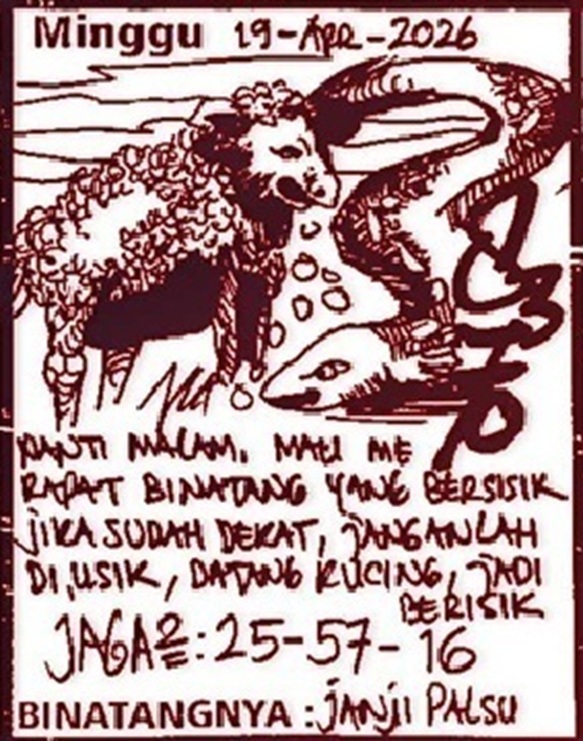 Minggu 19-Apr-2026
NANTI MALAM. MAU ME
RAPAT BINATANG YANG BERSISIK
JIKA SUDAH DEKAT, JANGANLAH
DI,USIK, DATANG KUCING, JADI
BERISIK
JAGA2=: 25-57-16
BINATANGNYA : JANJI PALSU